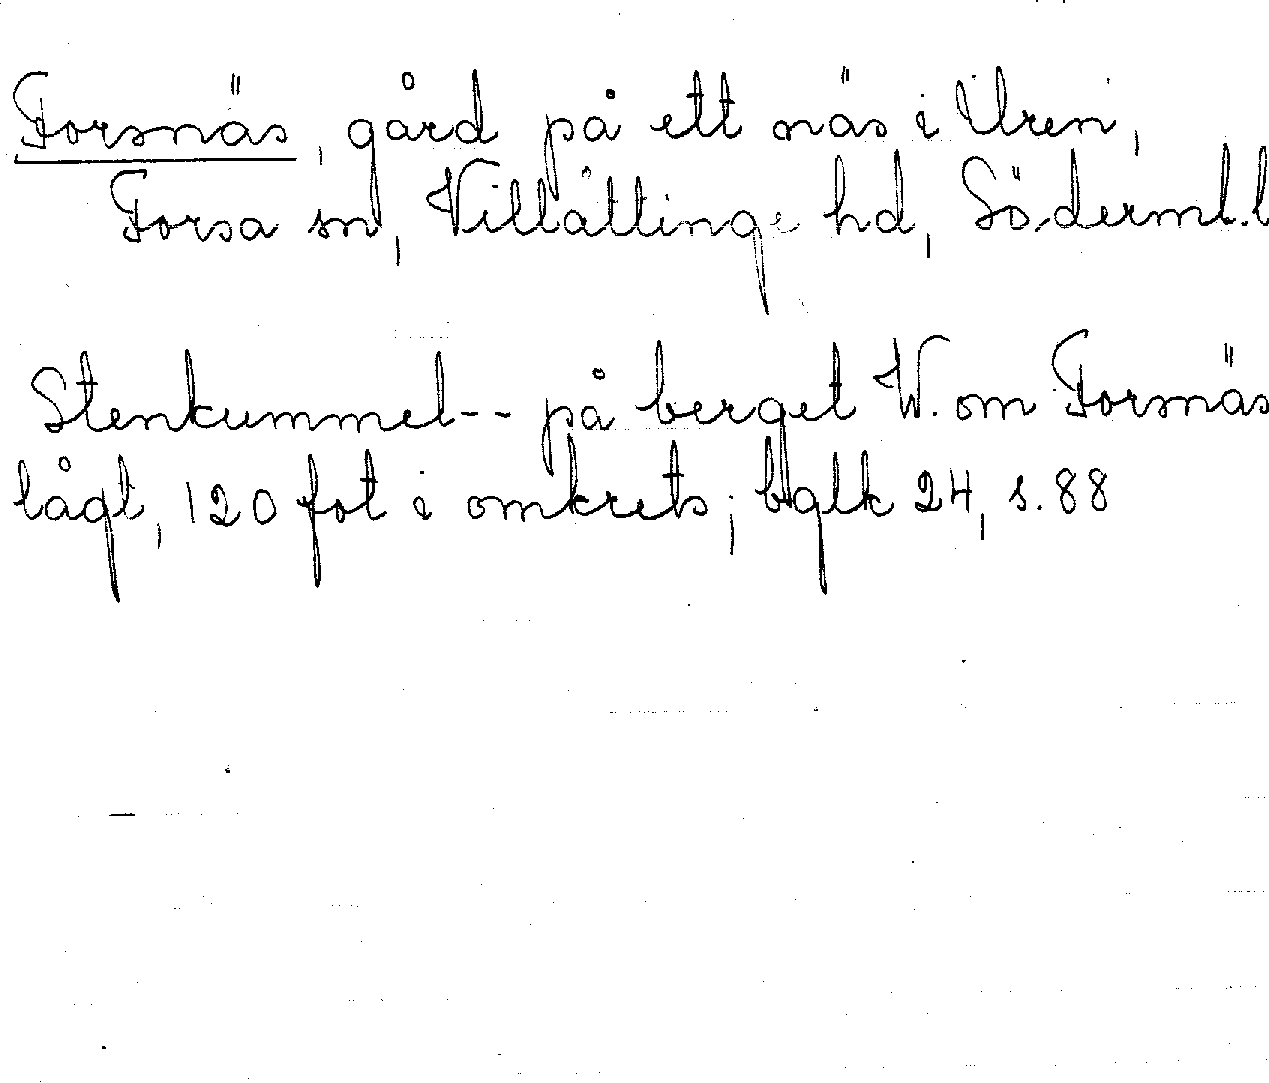 Forsnäs, gård på ett näs i Uren,
Forsa sn, Villåttinge hd, Söderml.l
Stenkummel-- på berget V. om Forsnäs
lågt, 120 fot i omkrets; bglk 24, s. 88